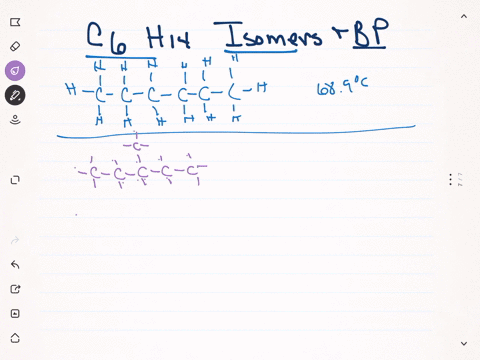 C6 H14 Isomers + BP
H H H H H H
H-C-C-C-C-C-C-H 68.9°C
H H H H H H
-C-
-C-C-C-C-C-
7/7